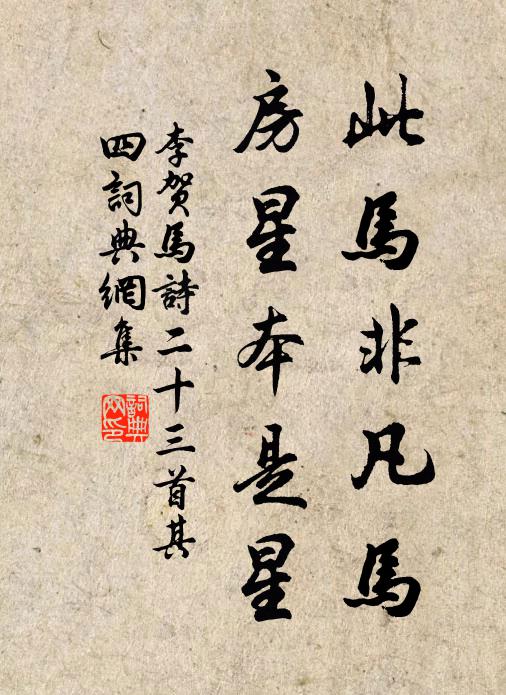 此馬非凡馬
房星本是星
李贺馬詩二十三首其
四詞典網集
詞典
网印